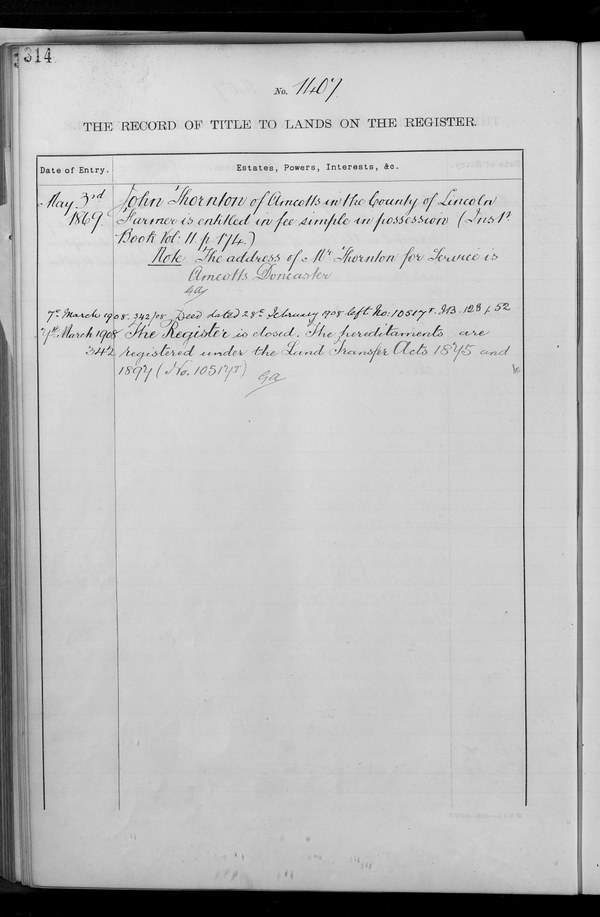 314
No. 1407
THE RECORD OF TITLE TO LANDS ON THE REGISTER.
Date of Entry. Estates, Powers, Interests, &c.
May 3rd John Thornton of Amcotts in the County of Lincoln
1869. Farmer is entitled in fee simple in possession (Inst.
Book Vol: 11 p 174.)
Note The address of Mr Thornton for Service is
Amcotts Doncaster
7th March 1908. 342/08 Deed dated 28th February 1908 left No: 10517T. IB. 128 p. 52
7th March 1908 The Register is closed. The hereditaments are
342 registered under the Land Transfer Acts 1875 and
1897 (No. 10517T)